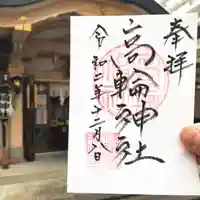 奉拝
高輪神社
令和二年十二月八日